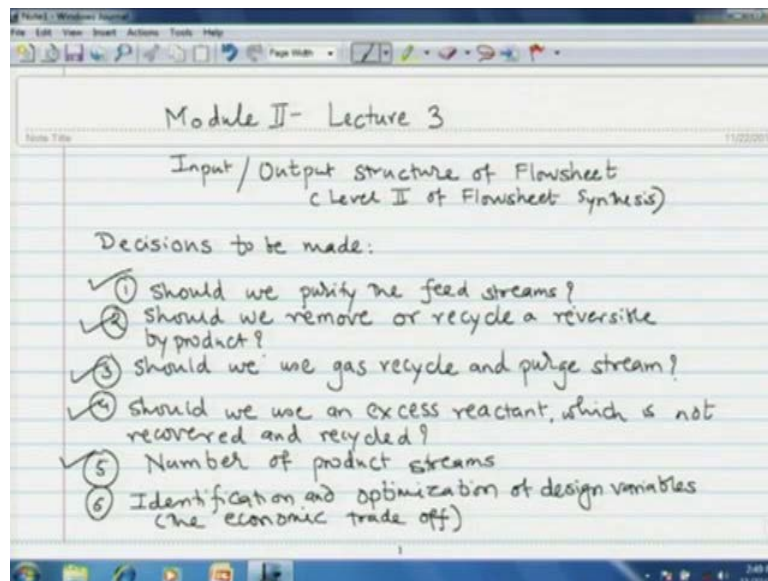 Note1 - Windows Journal
File Edit View Insert Actions Tools Help
Page Width
Module II - Lecture 3
Note Title
Input / Output structure of Flowsheet
(Level II of Flowsheet Synthesis)
Decisions to be made:
1 Should we purify the feed streams?
2 Should we remove or recycle a reversible
byproduct?
3 Should we use gas recycle and purge stream?
4 Should we use an excess reactant, which is not
recovered and recycled?
5 Number of product streams
6 Identification and optimization of design variables
(the economic trade off)
1